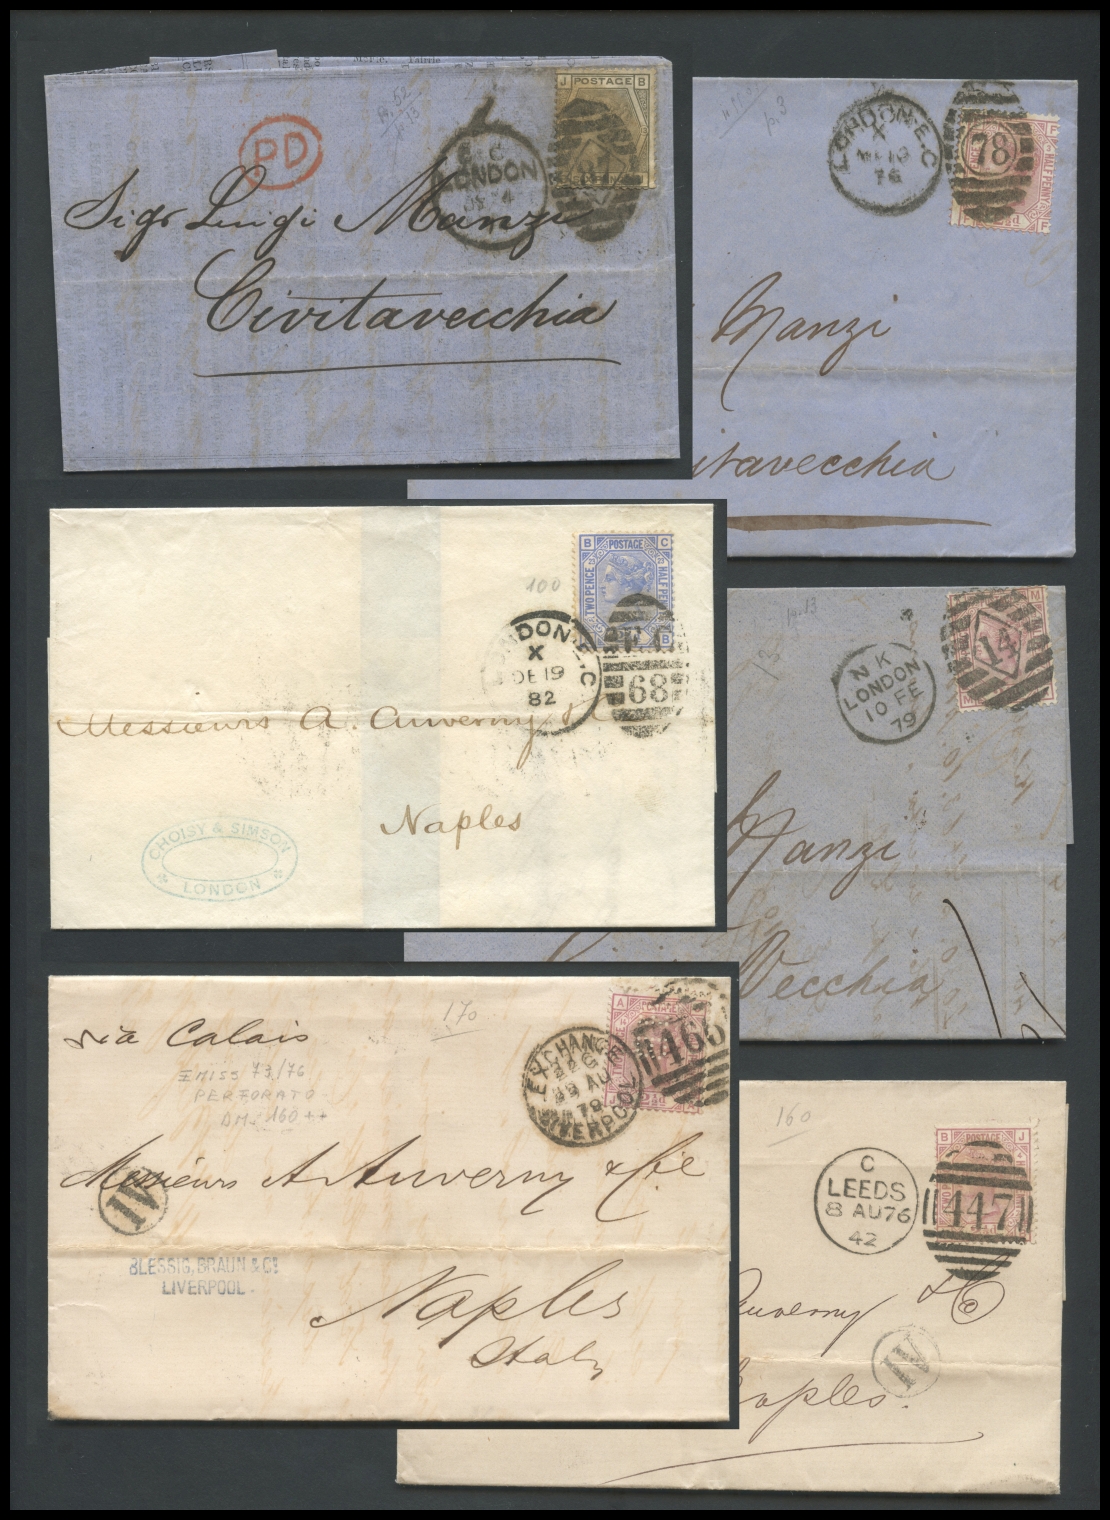 p. 52
p. 13
PD
E.C
LONDON
J POSTAGE B
Sigr Luigi Manzi
Civitavecchia
p. 3
LONDON.E.C
X
76
78
HALF PENNY
F
F
Manzi
itavecchia
100
B POSTAGE C
TWO PENCE
HALF PEN
B
LONDON.E.C
X
DE 19
82
E.C
68
Messieurs A. Auverny &
Naples
CHOISY & SIMSON
LONDON
p. 13
N K
LONDON
10 FE
79
M
14
Manzi
Vecchia
via Calais
170
EMISS 73/76
PERFORATO
160 ++
EXCHANGE
AU
79
LIVERPOOL
A
J 2½D A
466
Messieurs A Auverny & Cie
IV
BLESSIG, BRAUN & Co
LIVERPOOL.
Naples
Italy
160
C
LEEDS
8 AU 76
42
B POSTAGE J
447
Auverny & Co
IV
Naples.